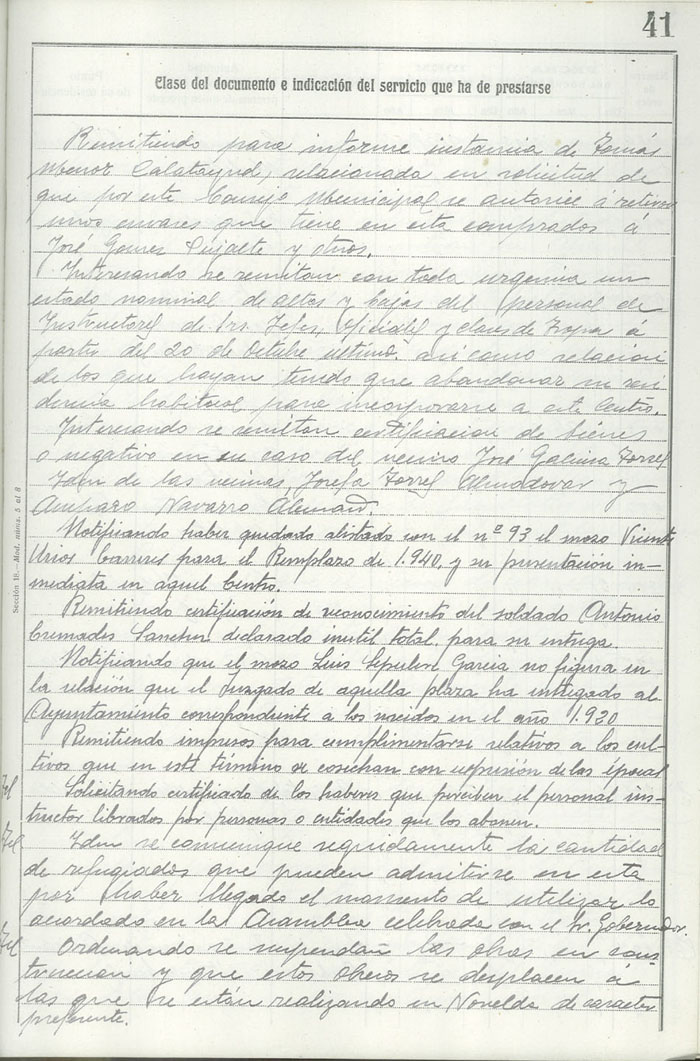 41
Clase del documento e indicación del servicio que ha de prestarse
Remitiendo para informe instancia de Tomás
Menor Calatayud, relacionada en solicitud de
que por este Consejo Municipal se autorice á retirar
unos envases que tiene en esta comprados á
José Gomez y otros.
Interesando se remitan con toda urgencia un
estado nominal de altas y bajas del personal de
Instructores de Srs. Jefes, Oficiales y clases de tropa á
partir del 20 de Octubre último, asi como relacion
de los que hayan tenido que abandonar su resi
dencia habitual, para incorporarse a este Centro.
Interesando se remitan certificacion de bienes
o negativo en su caso del vecino José Galiana Torres
Idem de las vecinas, Josefa Torres Almodovar y
Amparo Navarro Aleman.
Notificando haber quedado alistado con el nº 93 el mozo Vicente
Urios Carreres para el Remplazo de 1.940, y su presentación in-
mediata en aquel Centro.
Remitiendo certificación de reconocimiento del soldado Antonio
Cremades Sanchez declarado inutil total, para su entrega.
Notificando que el mozo Luis Garcia no figura en
la relación que el Juzgado de aquella plaza ha entregado al
Ayuntamiento correspondiente a los nacidos en el año 1.920
Remitiendo impresos para cumplimentarse relativos a los cul-
tivos que en este término se cosechan con expresión de las épocas
Solicitando certificado de los haberes que perciben el personal ins-
tructor librados por personas o entidades que los abonen.
Idem se comunique seguidamente la cantidad
de refugiados que pueden admitirse en esta
por haber llegado el momento de utilizar lo
acordado en la Asamblea celebrada con el Sr. Gobernador.
Ordenando se suspendan las obras en cons-
truccion y que estos obreros se desplacen á
las que se están realizando en Novelda de caracter
preferente.
Sección 18.—Mod. núms. 5 al 8